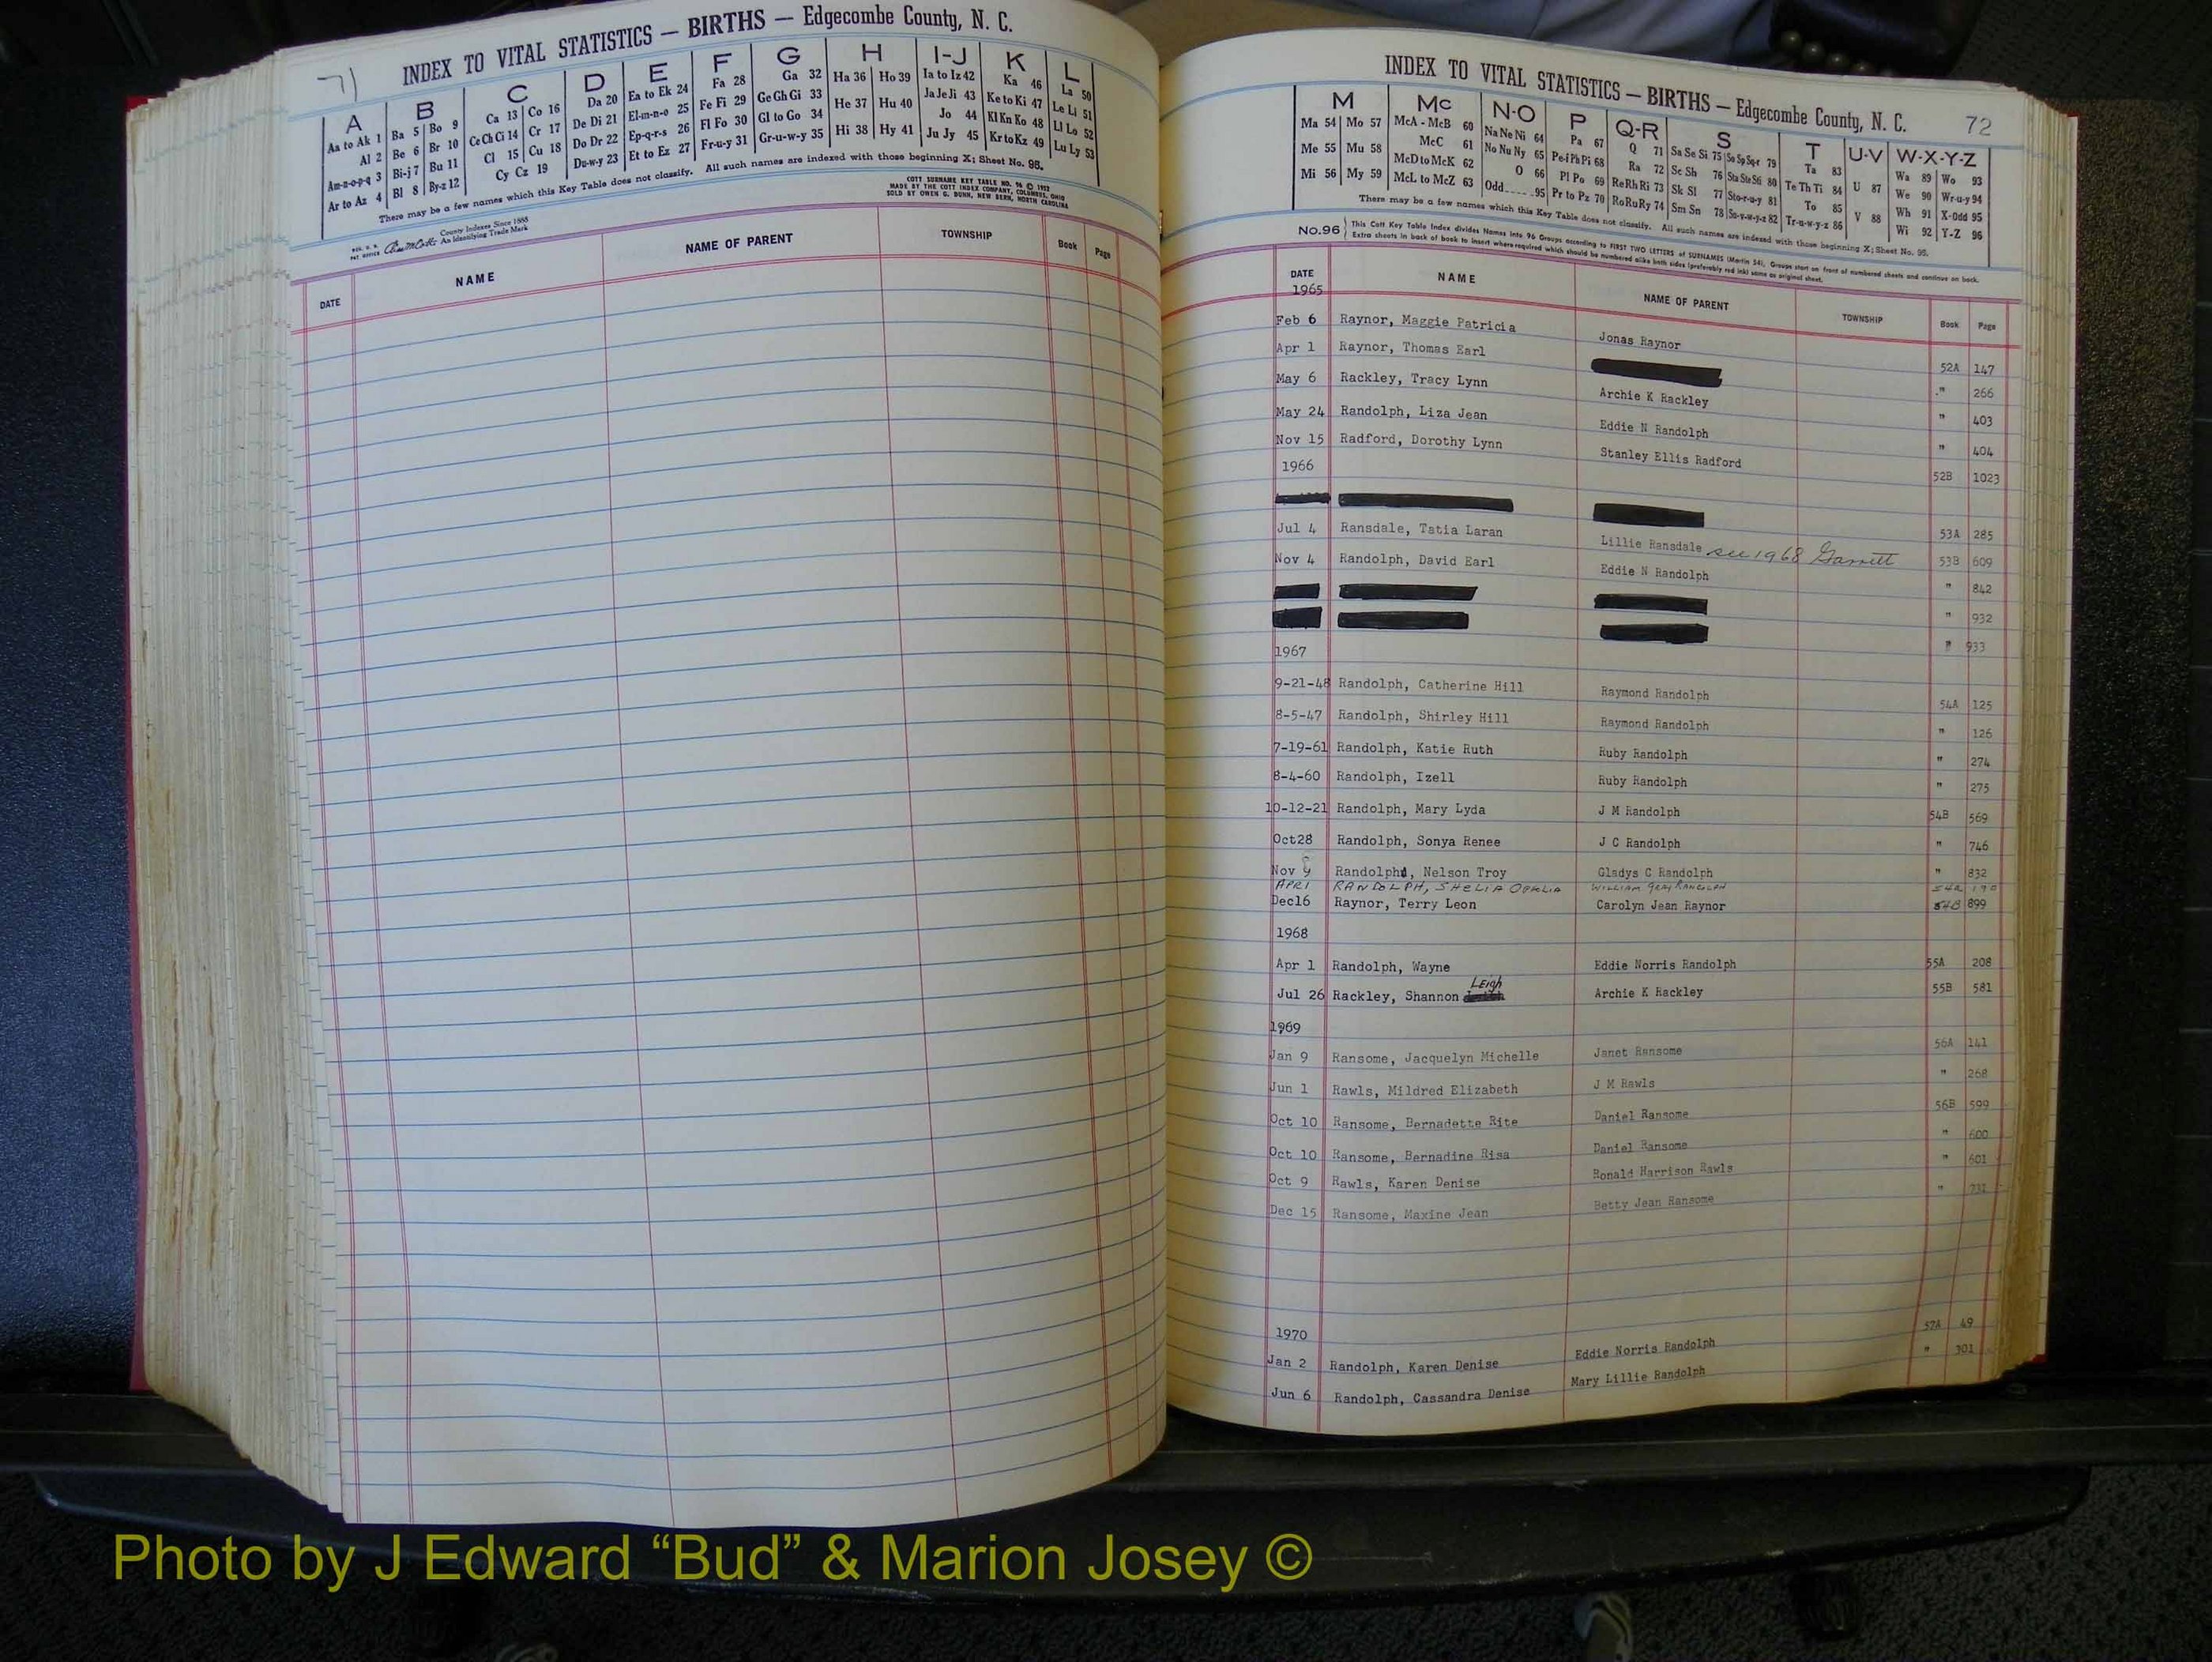 71
INDEX TO VITAL STATISTICS — BIRTHS — Edgecombe County, N. C.
A B C D E F G H I-J K L
Aa to Ak 1 Ba 5 Bo 9 Ca 13 Co 16 Da 20 Ea to Ek 24 Fa 28 Ga 32 Ha 36 Ho 39 Ia to Iz 42 Ka 46 La 50
Al 2 Be 6 Br 10 Ce Ch Ci 14 Cr 17 De Di 21 El-m-n-o 25 Fe Fi 29 Ge Gh Gi 33 He 37 Hu 40 Ja Je Ji 43 Ke to Ki 47 Le Li 51
Am-n-o-p-q 3 Bi-j 7 Bu 11 Cl 15 Cu 18 Do Dr 22 Ep-q-r-s 26 Fl Fo 30 Gl to Go 34 Hi 38 Hy 41 Jo 44 Kl Kn Ko 48 Ll Lo 52
Ar to Az 4 Bl 8 By-z 12 Cy Cz 19 Du-w-y 23 Et to Ez 27 Fr-u-y 31 Gr-u-w-y 35 Ju Jy 45 Kr to Kz 49 Lu Ly 53
There may be a few names which this Key Table does not classify. All such names are indexed with those beginning X; Sheet No. 95.
COTT SURNAME KEY TABLE NO. 96 © 1952
MADE BY THE COTT INDEX COMPANY, COLUMBUS, OHIO
SOLD BY OWEN G. DUNN, NEW BERN, NORTH CAROLINA
County Indexes Since 1888
An Identifying Trade Mark
DATE NAME NAME OF PARENT TOWNSHIP Book Page
INDEX TO VITAL STATISTICS — BIRTHS — Edgecombe County, N. C. 72
M Mc N-O P Q-R S T U-V W-X-Y-Z
Ma 54 Mo 57 McA - McB 60 Na Ne Ni 64 Pa 67 Q 71 Sa Se Si 75 So Sp Sq-r 79 Ta 83 U 87 Wa 89 Wo 93
Me 55 Mu 58 McC 61 No Nu Ny 65 Pe-f Ph Pi 68 Ra 72 Sc Sh 76 Sta Ste Sti 80 Te Th Ti 84 V 88 We 90 Wr-u-y 94
Mi 56 My 59 McD to McK 62 O 66 Pl Po 69 Re Rh Ri 73 Sk Sl 77 Sto-r-u-y 81 To 85 Wh 91 X-Odd 95
McL to McZ 63 Odd 95 Pr to Pz 70 Ro Ru Ry 74 Sm Sn 78 Su-v-w-y-z 82 Tr-u-w-y-z 86 Wi 92 Y-Z 96
There may be a few names which this Key Table does not classify. All such names are indexed with those beginning X; Sheet No. 95.
No.96 This Cott Key Table Index divides Names into 96 Groups according to FIRST TWO LETTERS of SURNAMES (Martin 54). Groups start on front of numbered sheets and continue on back.
Extra sheets in back of book to insert where required which should be numbered alike both sides (preferably red ink) same as original sheet.
DATE NAME NAME OF PARENT TOWNSHIP Book Page
1965
Feb 6 Raynor, Maggie Patricia Jonas Raynor 52A 147
Apr 1 Raynor, Thomas Earl " 266
May 6 Rackley, Tracy Lynn Archie K Rackley " 403
May 24 Randolph, Liza Jean Eddie N Randolph " 404
Nov 15 Radford, Dorothy Lynn Stanley Ellis Radford 52B 1023
1966
53A 285
Jul 4 Ransdale, Tatia Laran Lillie Ransdale see 1968 Garrett 53B 609
Nov 4 Randolph, David Earl Eddie N Randolph " 842
" 932
" 933
1967
9-21-48 Randolph, Catherine Hill Raymond Randolph 54A 125
8-5-47 Randolph, Shirley Hill Raymond Randolph " 126
7-19-61 Randolph, Katie Ruth Ruby Randolph " 274
8-4-60 Randolph, Izell Ruby Randolph " 275
10-12-21 Randolph, Mary Lyda J M Randolph 54B 569
Oct28 Randolph, Sonya Renee J C Randolph " 746
Nov 9 Randolph, Nelson Troy Gladys C Randolph " 832
APR 1 RANDOLPH, SHELIA OPHELIA WILLIAM GRAY RANDOLPH
Dec16 Raynor, Terry Leon Carolyn Jean Raynor 54B 899
1968
Apr 1 Randolph, Wayne Eddie Norris Randolph 55A 208
Jul 26 Rackley, Shannon Leigh Archie K Rackley 55B 581
1969
Jan 9 Ransome, Jacquelyn Michelle Janet Ransome 56A 141
Jun 1 Rawls, Mildred Elizabeth J M Rawls " 268
Oct 10 Ransome, Bernadette Rite Daniel Ransome 56B 599
Oct 10 Ransome, Bernadine Risa Daniel Ransome " 600
Oct 9 Rawls, Karen Denise Ronald Harrison Rawls " 601
Dec 15 Ransome, Maxine Jean Betty Jean Ransome " 731
1970
Jan 2 Randolph, Karen Denise Eddie Norris Randolph 57A 49
Jun 6 Randolph, Cassandra Denise Mary Lillie Randolph " 301
Photo by J Edward “Bud” & Marion Josey ©